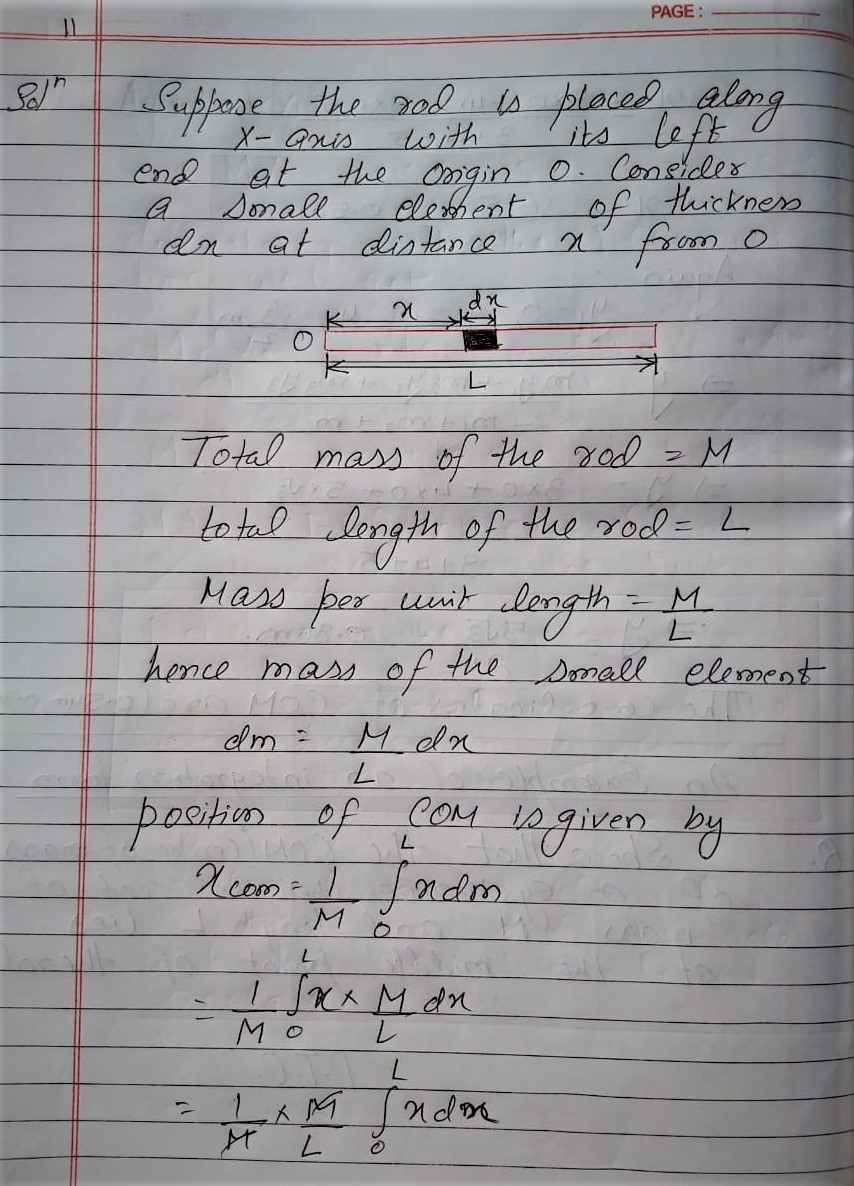 PAGE:
11
Solⁿ Suppose the rod is placed along
X-axis with its left
end at the origin O. Consider
a small element of thickness
dx at distance x from O
x dx
O
L
Total mass of the rod = M
total length of the rod = L
Mass per unit length = M/L
hence mass of the small element
dm = M/L dx
position of COM is given by
xcom = 1/M ∫₀ᴸ x dm
= 1/M ∫₀ᴸ x × M/L dx
= 1/M × M/L ∫₀ᴸ x dx